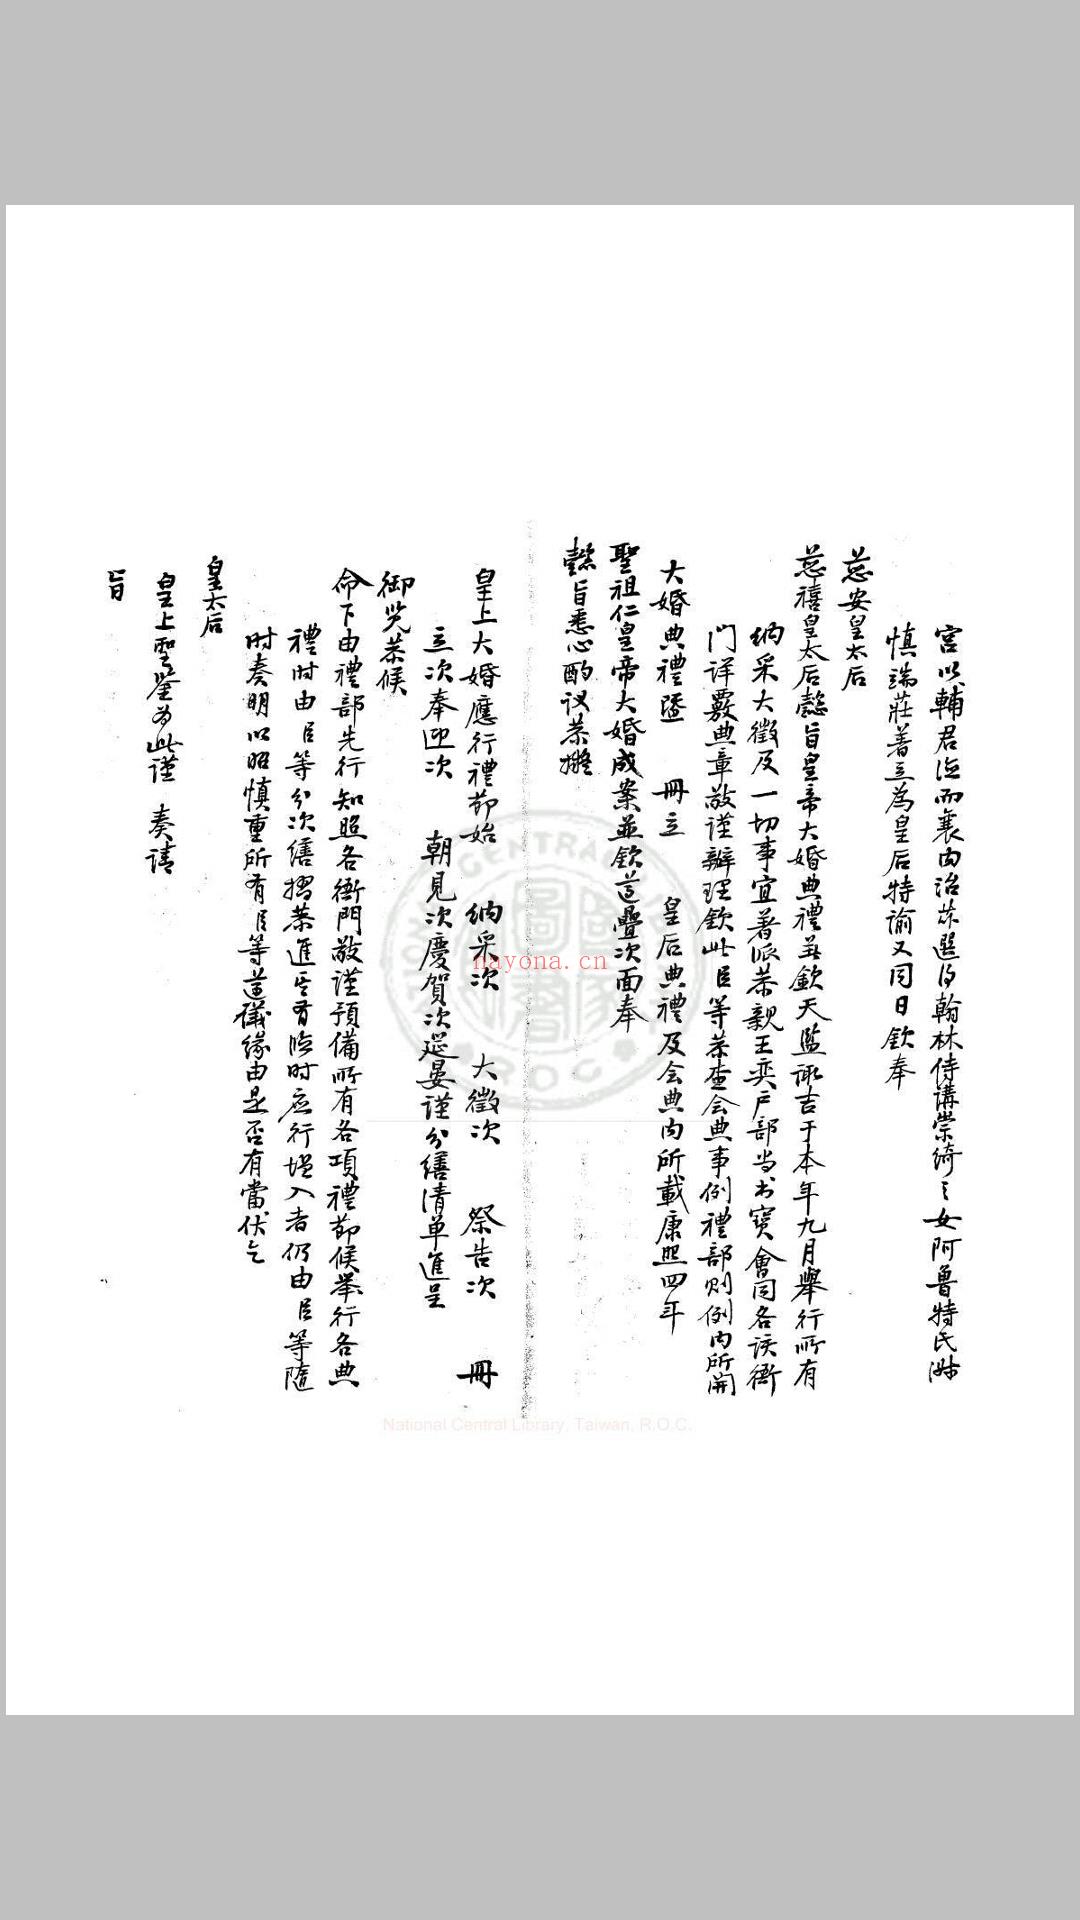 宮以輔君德而襄內治茲選得翰林侍講崇綺之女阿魯特氏淑
慎端莊著立為皇后特諭又同日欽奉
慈安皇太后
慈禧皇太后懿旨皇帝大婚典禮並欽天監諏吉于本年九月舉行所有
納采大徵及一切事宜著派恭親王奕戶部尚書寶會同各該衙
門详覈典章敬謹辦理欽此臣等恭查会典事例禮部則例內所開
大婚典禮暨 冊立 皇后典禮及会典內所載康熙四年
聖祖仁皇帝大婚成案並欽遵疊次面奉
懿旨悉心酌议恭擬
皇上大婚應行禮節始 納采次 大徵次 祭告次 冊
立次奉迎次 朝見次慶賀次筵宴謹分繕清單進呈
御览恭候
命下由禮部先行知照各衙門敬謹預備所有各項禮節候舉行各典
禮时由臣等分次繕摺恭進至有臨时应行增入者仍由臣等隨
时奏明以昭慎重所有臣等遵議緣由是否有當伏乞
皇太后
皇上聖鑒为此谨 奏请
旨
nayona.cn
National Central Library, Taiwan, R.O.C.